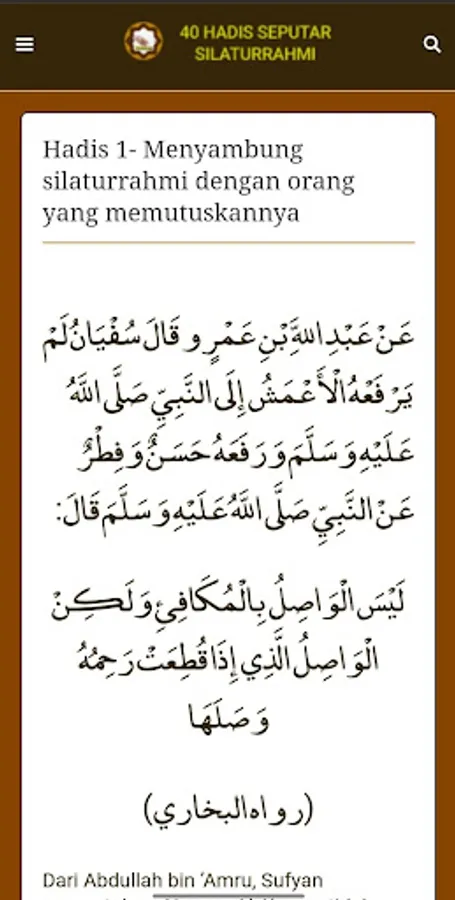 40 HADIS SEPUTAR
SILATURRAHMI
Hadis 1- Menyambung
silaturrahmi dengan orang
yang memutuskannya
عَنْ عَبْدِ اللهَِّ بْنِ عَمْرٍو قَالَ سُفْيَانُ لَمْ
يَرْفَعْهُ الْأَعْمَشُ إِلَى النَّبِيِّ صَلَّى اللَّهُ
عَلَيْهِ وَسَلَّمَ وَرَفَعَهُ حَسَنٌ وَفِطْرٌ
عَنْ النَّبِيِّ صَلَّى اللَّهُ عَلَيْهِ وَسَلَّمَ قَالَ:
لَيْسَ الْوَاصِلُ بِالْمُكَافِئِ وَلَكِنْ
الْوَاصِلُ الَّذِي إِذَا قُطِعَتْ رَحِمُهُ
وَصَلَهَا
(رواه البخاري)
Dari Abdullah bin ‘Amru, Sufyan